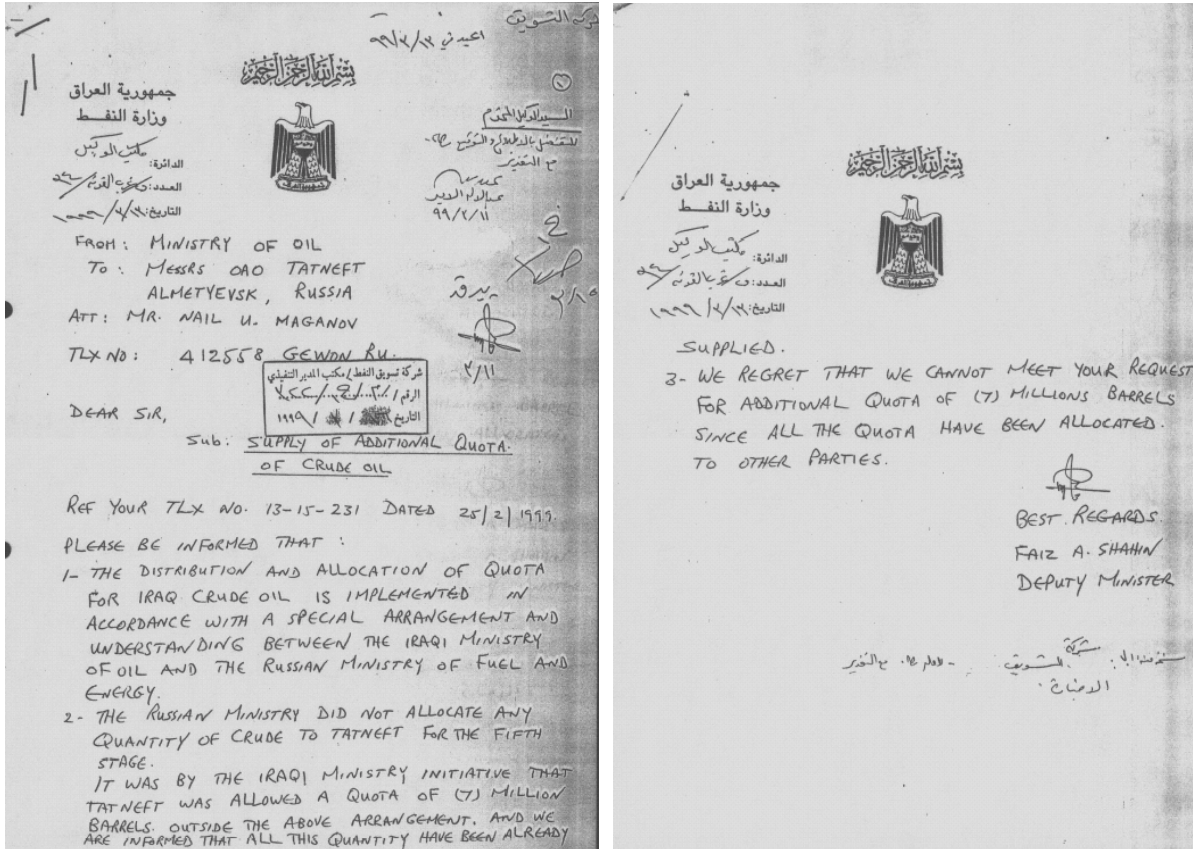 شركة التسويق
اعيدني ٩٩/٣/١٣
بسم الله الرحمن الرحيم
جمهورية العراق
وزارة النفــط
الدائرة: مكتب الوكيل
العدد:
التاريخ:
السيد الوكيل المحترم
للتفضل بالاطلاع والتوقيع
مع التقدير
FROM: MINISTRY OF OIL
TO: MESSRS OAO TATNEFT
ALMETYEVSK, RUSSIA
ATT: MR. NAIL U. MAGANOV
٣/١١
TLX NO: 412558 GEWON RU.
شركة تسويق النفط/مكتب المدير التنفيذي
الرقم/
التاريخ / / ١٩٩٩
DEAR SIR,
SUB: SUPPLY OF ADDITIONAL QUOTA.
OF CRUDE OIL
REF YOUR TLX NO. 13-15-231 DATED 25/2/1999.
PLEASE BE INFORMED THAT:
1- THE DISTRIBUTION AND ALLOCATION OF QUOTA
FOR IRAQ CRUDE OIL IS IMPLEMENTED IN
ACCORDANCE WITH A SPECIAL ARRANGEMENT AND
UNDERSTANDING BETWEEN THE IRAQI MINISTRY
OF OIL AND THE RUSSIAN MINISTRY OF FUEL AND
ENERGY.
2- THE RUSSIAN MINISTRY DID NOT ALLOCATE ANY
QUANTITY OF CRUDE TO TATNEFT FOR THE FIFTH
STAGE.
IT WAS BY THE IRAQI MINISTRY INITIATIVE THAT
TATNEFT WAS ALLOWED A QUOTA OF (7) MILLION
BARRELS. OUTSIDE THE ABOVE ARRANGEMENT. AND WE
ARE INFORMED THAT ALL THIS QUANTITY HAVE BEEN ALREADY
بسم الله الرحمن الرحيم
جمهورية العراق
وزارة النفــط
الدائرة: مكتب الوكيل
العدد:
التاريخ:
SUPPLIED.
3- WE REGRET THAT WE CANNOT MEET YOUR REQUEST
FOR ADDITIONAL QUOTA OF (7) MILLIONS BARRELS
SINCE ALL THE QUOTA HAVE BEEN ALLOCATED.
TO OTHER PARTIES.
BEST REGARDS.
FAIZ A. SHAHIN
DEPUTY MINISTER
شركة التسويق مع التقدير